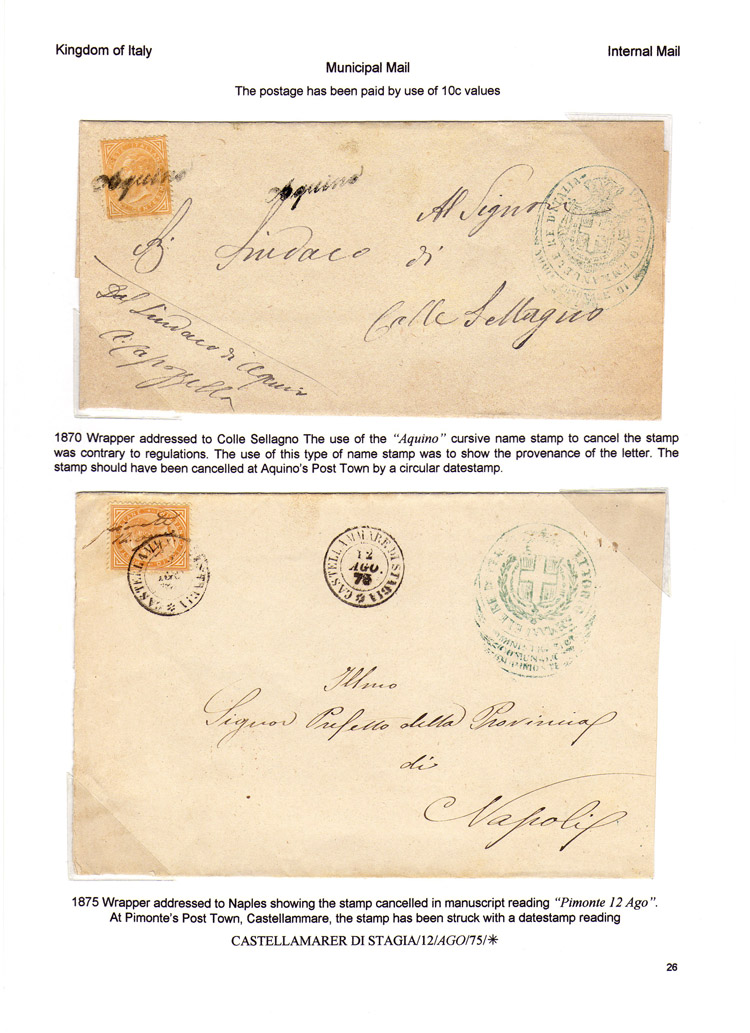 Kingdom of Italy
Internal Mail
Municipal Mail
The postage has been paid by use of 10c values
Aquino
Aquino
Al Signor
Sindaco di
Colle Sellagno
Dal Sindaco di Aquin
1870 Wrapper addressed to Colle Sellagno The use of the "Aquino" cursive name stamp to cancel the stamp
was contrary to regulations. The use of this type of name stamp was to show the provenance of the letter. The
stamp should have been cancelled at Aquino's Post Town by a circular datestamp.
CASTELLAMMARE DI STAGIA
12
AGO.
75
Illmo
Signor Prefetto della Provincia
di
Napoli
1875 Wrapper addressed to Naples showing the stamp cancelled in manuscript reading "Pimonte 12 Ago".
At Pimonte's Post Town, Castellammare, the stamp has been struck with a datestamp reading
CASTELLAMARER DI STAGIA/12/AGO/75/✳
26